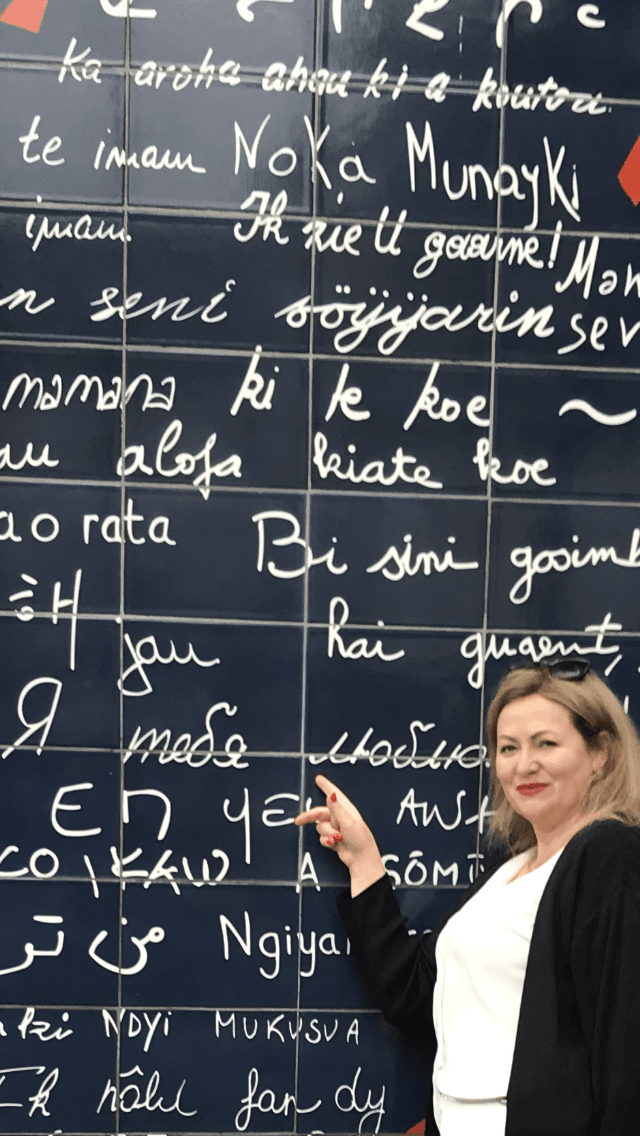 Ka aroha ahau ki a koutou.
te imam NoKa Munayki
imam. Ik zie U gaarne! Mən
seni söyýärin sev
mamana ki te koe ~
au alofa kiate koe
ao rata Bi sini gosimb
해 jau hai gugent,
Я тебя люблю
EN YEN AWS
A SÔMI
من Ngiya
NDYI MUKUSVA
Ik hâld fan dy